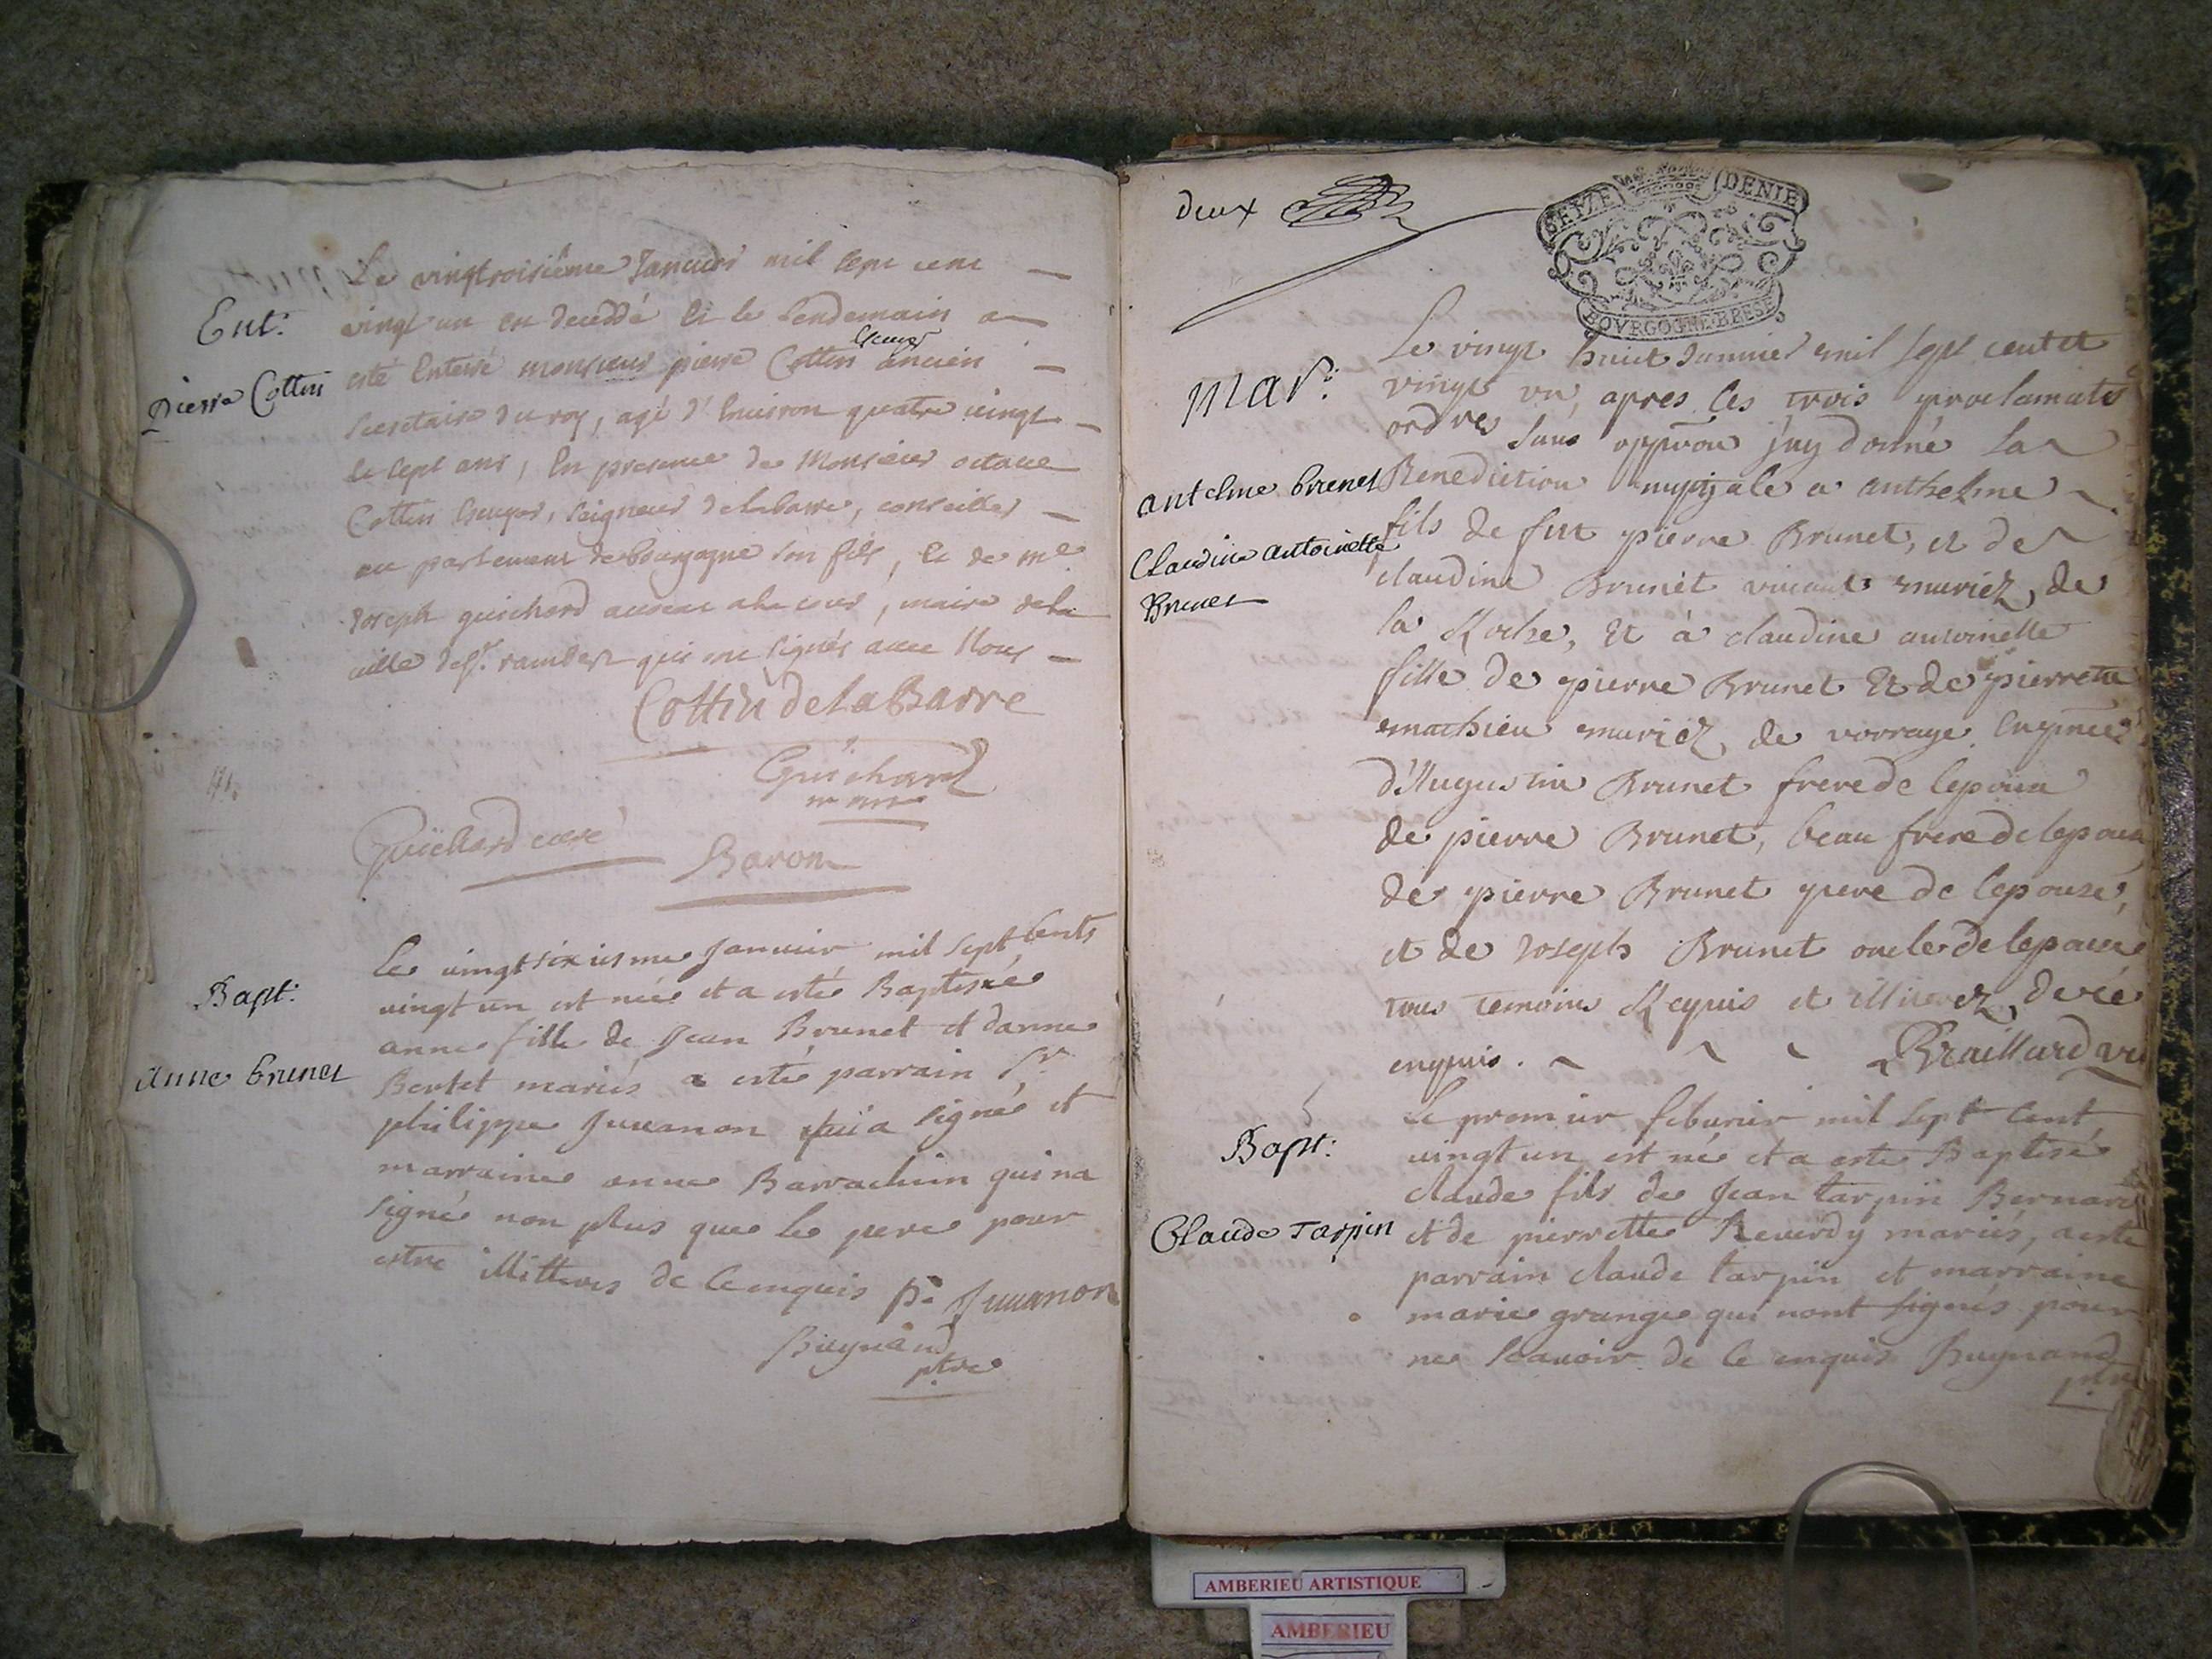 Ent:
Pierre Cottin
Le vingtroisième Janvier mil sept cent
vingt un est decedé et le lendemain a
esté enterré monsieur pierre Cottin Escuyer ancien
secretaire du roy, agé d'environ quatre vingt
et sept ans, en presence de Monsieur octave
Cottin Escuyer, seigneur de labarre, conseiller
au parlement de bourgogne son fils, et de me
Joseph guichard avocat a la cour, maire de la
ville de st rambert qui ont signés avec Nous
Cottin de La Barre
Guichard
Guichard curé
Baron
Bapt:
anne brunet
Le vingt sixiesme Janvier mil sept cents
vingt un est née et a esté Baptisée
anne fille de Jean Brunet et danne
Bertet mariés a esté parrain Sr
philippe Juvanon qui a signé et
marraine anne Barrachin qui na
signé non plus que le pere pour
estre illitteres de ce enquis p. Juvanon
Bugnand
ptre
deux
SEIZE DENIE
BOVRGOGNE BRESSE
Mar:
antelme brunet
Claudine antoinette
Brunet
Le vingt huict Janvier mil sept cent et
vingt un, apres les trois proclamats
ordres sans oppon j'ay donné la
Benediction nuptjale a anthelme
fils de fut pierre Brunet, et de
claudine Brunet vivants mariez, de
la Roche, Et à claudine antoinette
fille de pierre Brunet Et de pierrette
mathieu mariez, de vorrage En pnce
d'Augustin Brunet frere de lepoux
de pierre Brunet, beau frere de lepoux
de pierre Brunet pere de lepouse,
et de Joseph Brunet oncle de lepouse
tous temoins Requis et illiterez, de ce
enquis. Braillard vic
Bapt:
Claude Tarpin
Le premier febvrier mil sept cent
vingt un est né et a esté Baptisé
claude fils de Jean tarpin Bernard
et de pierrette Reverdy mariés, a esté
parrain claude tarpin et marraine
marie grange qui nont signés pour
ne scavoir de ce enquis Bugnand
ptre
AMBERIEU ARTISTIQUE
AMBERIEU